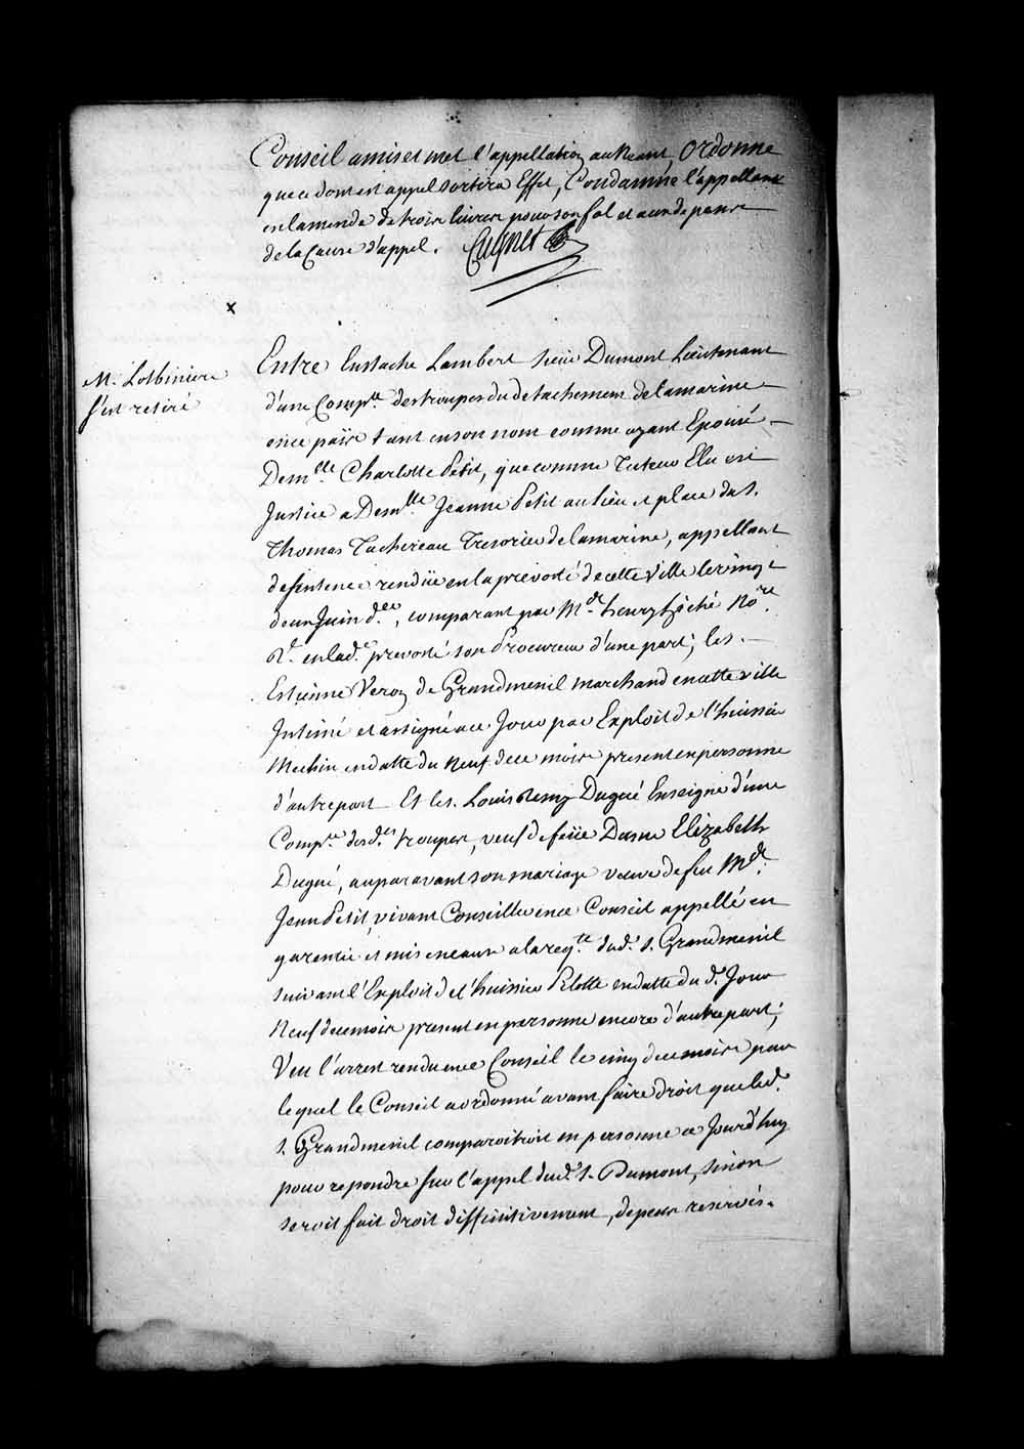 Conseil amis et met l'appellation au Neant, Ordonne
que ce dont est appel sortira Effet, Condamne l'appellant
en lamende de trois livres pour son fol et aux depens
de la Cause d'appel. Cugnet
x
M. Lotbiniere
s'est retiré
Entre Eustache Lambert sieur Dumont Lieutenant
d'une Compie. des troupes du detachement de la marine
en ce païs tant en son nom comme ayant Epousé
Demlle Charlotte Petit, que comme Tuteur Elu en
Justice a Demlle Jeanne Petit au lieu et place du S.
Thomas Tachereau Tresorier de la marine, appellant
de sentence rendüe en la prevosté de cette ville le vingt
deux Juin der., comparant par Me. henry hiché Nore.
Rl. en lad. prevosté son Procureur d'une part; le s.
Estienne Veron de Grandmenil marchand en cette ville
Intimé et assigné a ce Jour par Exploit de l'huissier
Mechin en datte du Neuf de ce mois present en personne
d'autre part Et le s. Louis Remy Dugué Enseigne d'une
Compie. desd. troupes, veuf de feüe Dame Elizabeth
Dugué, auparavant son mariage veuve de feu Me.
Jean Petit, vivant Conseiller en ce Conseil appellé en
garentie et mis en cause a la reqte. dud. s. Grandmenil
suivant l'Exploit de l'huissier Pilotte en datte du d. Jour
Neuf de ce mois present en personne encore d'autre part;
Veu l'arrest rendu en ce Conseil le cinq de ce mois par
lequel le Conseil a ordonné avant faire droit que led.
s. Grandmenil comparoitroit en personne a Jourd'huy
pour repondre sur l'appel dud. s. Dumont, sinon
seroit fait droit diffinitivement, depens reservés.